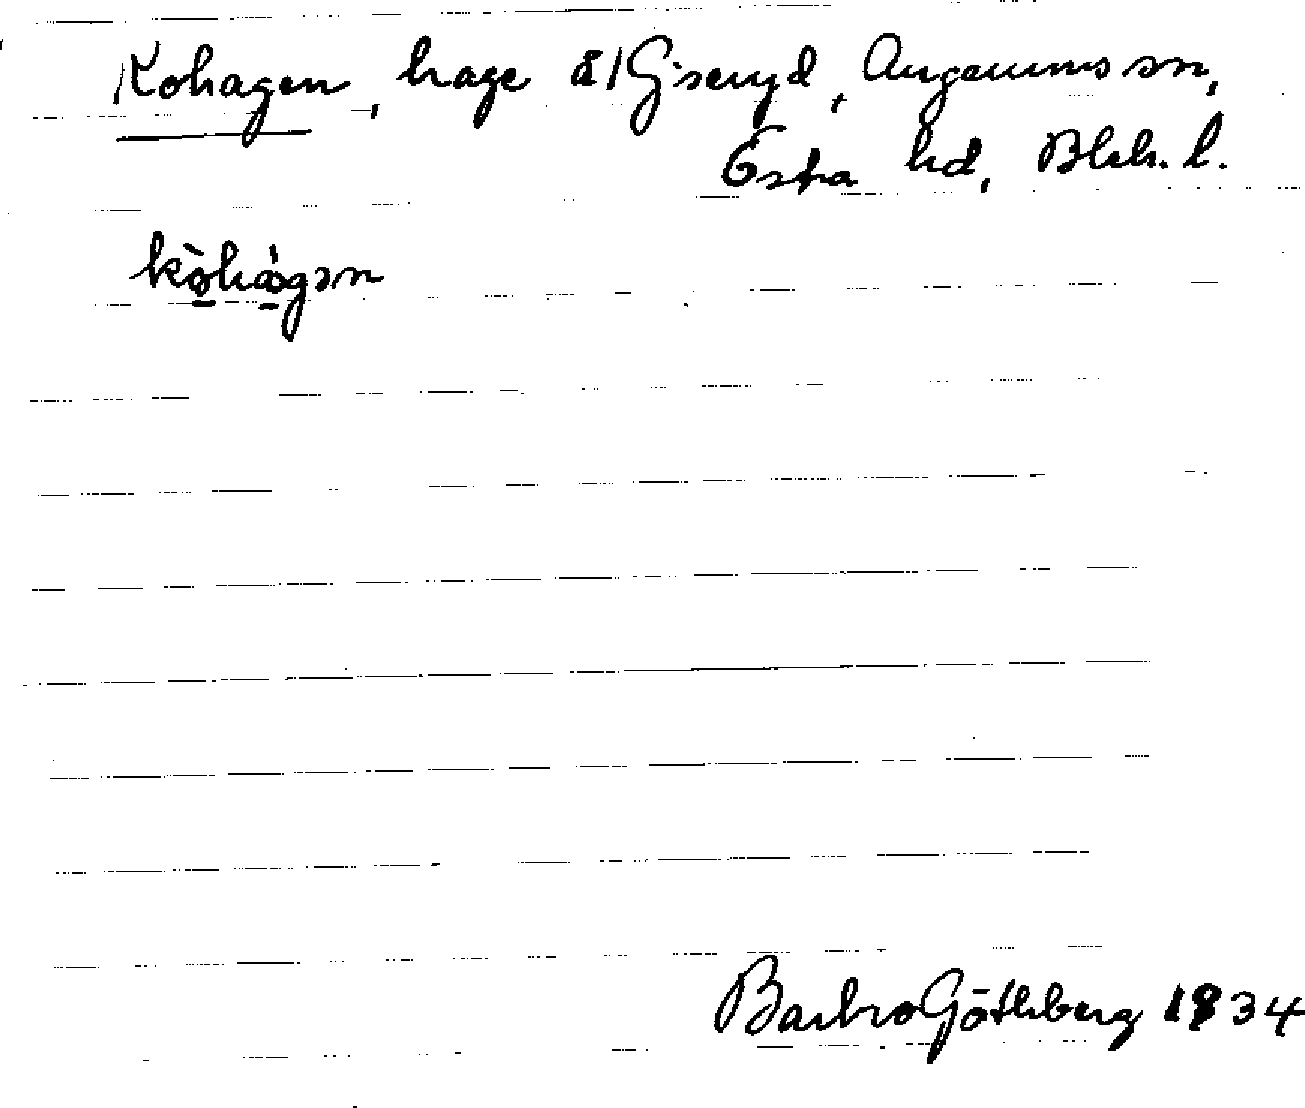 Kohagen, hage å 1 Giseryd, Augerums sn,
Östra hd, Blek. l.
kò̠há̠gən
Barbro Göthberg 1934